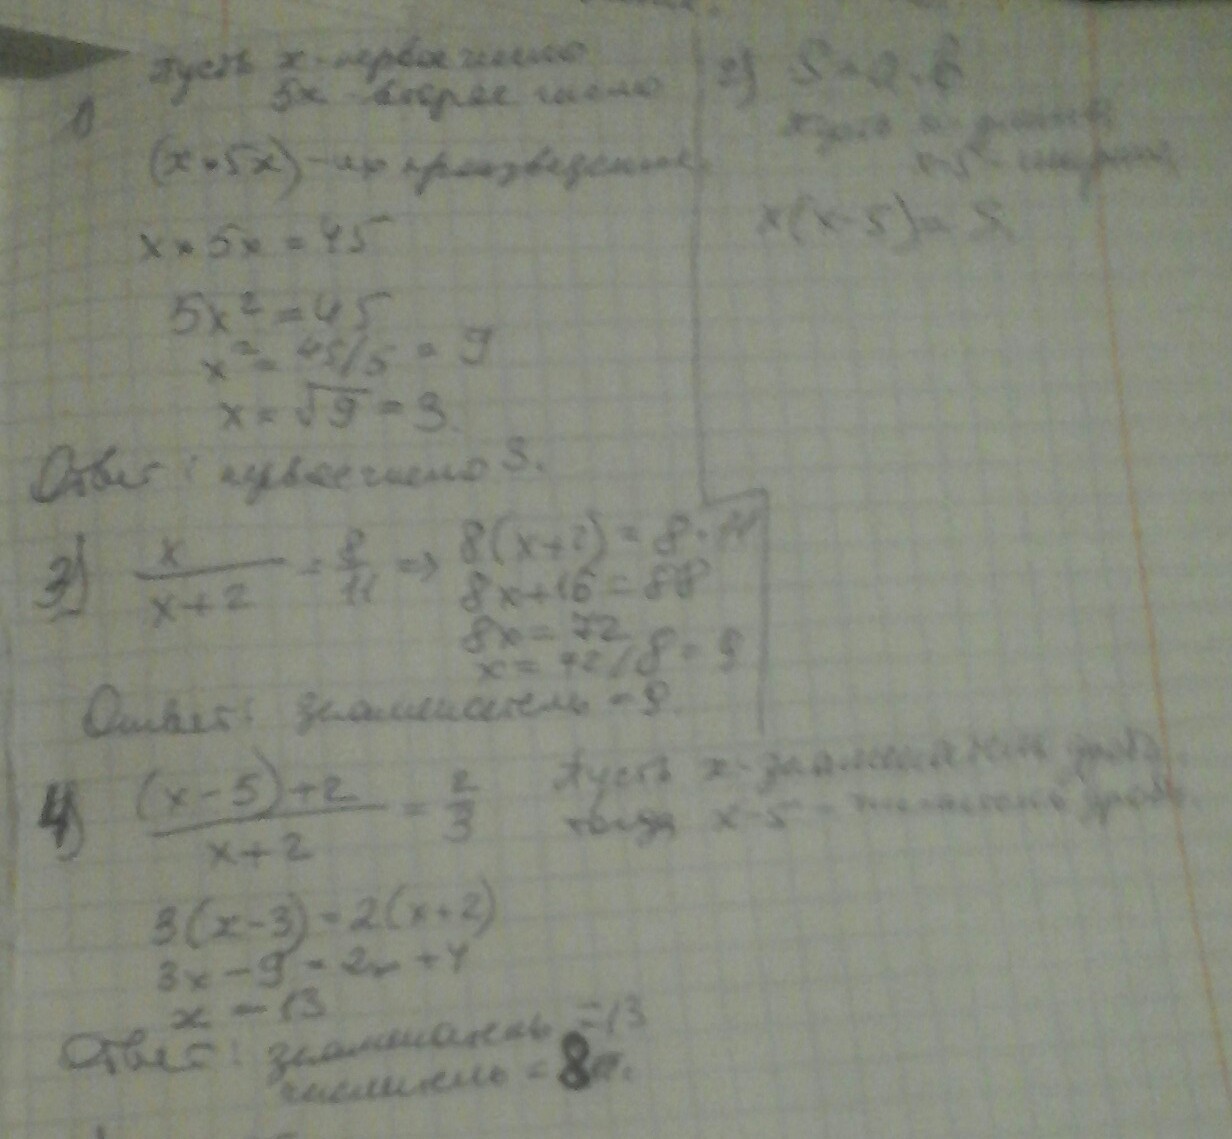 1)
Пусть x - первое число
5x - второе число
(x*5x) - их произведение
x*5x = 45
5x² = 45
x² = 45/5 = 9
x = √9 = 3.
Ответ: первое число 3.
2) S = a·b
Пусть x - длина
x-5 - ширина
x(x-5) = S
3) x/(x+2) = 8/11 => 8(x+2) = 8·11
8x+16 = 88
8x = 72
x = 72/8 = 9
Ответ: знаменатель = 9.
4) ((x-5)+2)/(x+2) = 2/3
Пусть x - знаменатель
тогда x-5 -
3(x-3) = 2(x+2)
3x-9 = 2x+4
x = 13
Ответ: знаменатель = 13
числитель = 8